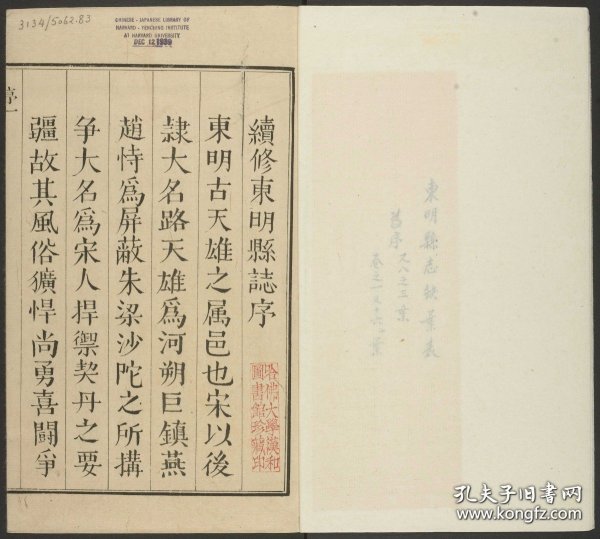 東明縣志缺葉表
舊序 又八之三葉
卷之一 又十七葉
3134/5062.83
CHINESE - JAPANESE LIBRARY OF
HARVARD - YENCHING INSTITUTE
AT HARVARD UNIVERSITY
DEC 12 1939
續修東明縣誌序
哈佛大學漢和
圖書館珍藏印
東明古天雄之属邑也宋以後
隷大名路天雄爲河朔巨鎮燕
趙恃爲屏蔽朱梁沙陀之所搆
争大名爲宋人捍禦契丹之要
疆故其風俗獷悍尚勇喜闘爭
序一
孔夫子旧书网
www.kongfz.com